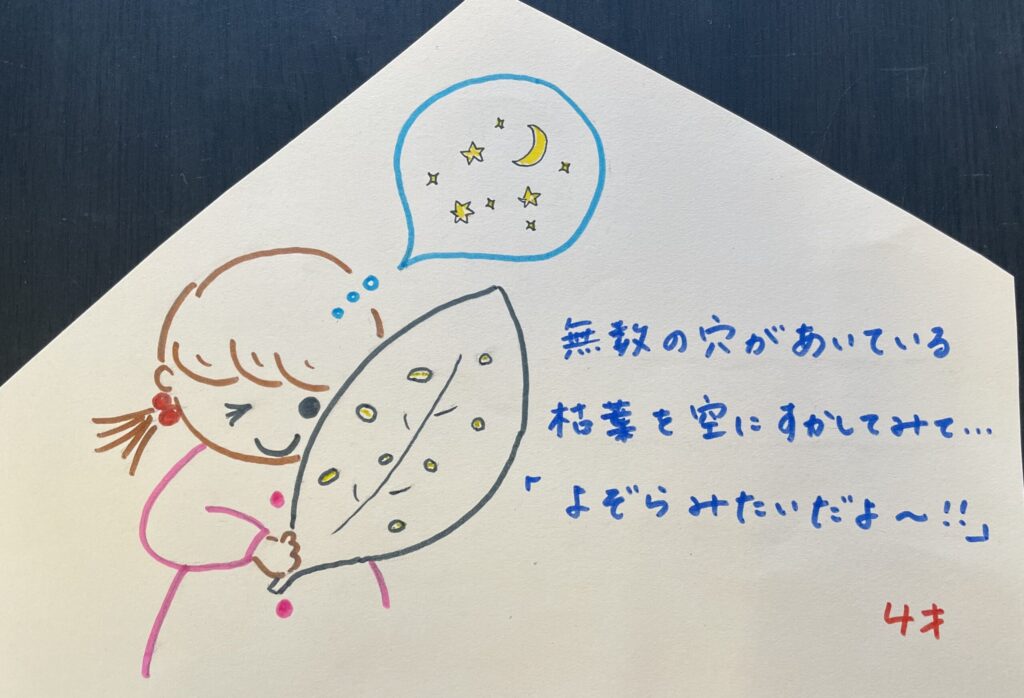 無数の穴があいている
枯葉を空にすかしてみて…
「よぞらみたいだよ〜!!」
4才